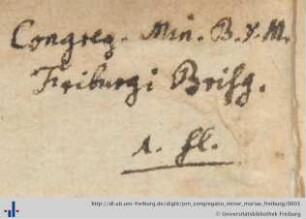 Congreg. Min. B. V. M.
Friburgi Brisg.
1. fl.
http://dl.ub.uni-freiburg.de/diglit/prn_congregatio_minor_mariae_freiburg/0001
© Universitätsbibliothek Freiburg